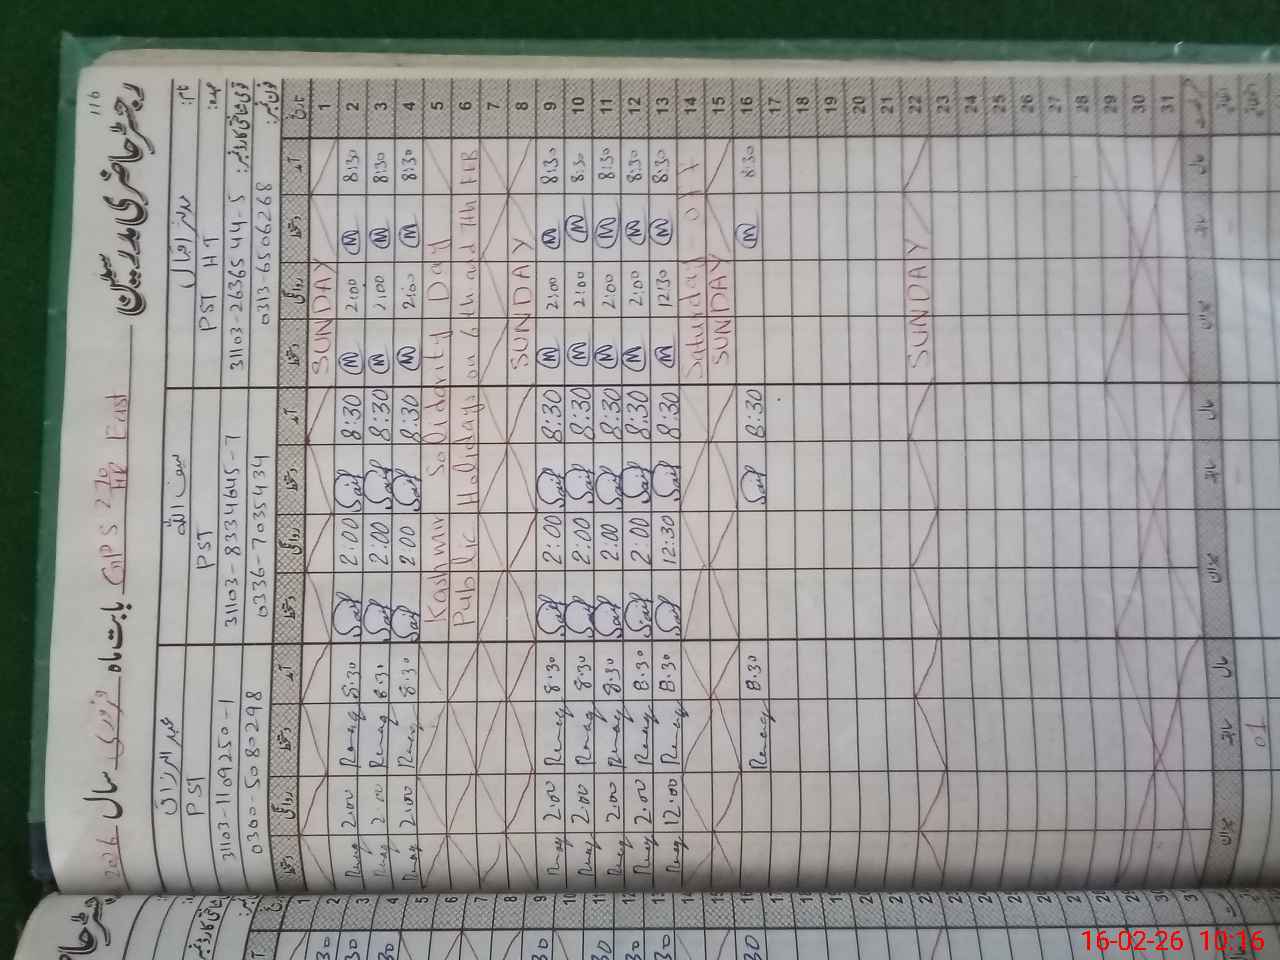 116
دفتر حاضری مدرسین GPS 270 HR East بابت ماہ فروری سال 2026
نام: اقبال سیف اللہ عبدالرزاق
عہدہ: PST HT PST PST
31103-2636544-5 31103-8334645-7 31103-1109250-1
فون نمبر: 0313-6506268 0336-7035434 0300-5080298
تاریخ آمد دستخط روانگی دستخط آمد دستخط روانگی دستخط آمد دستخط روانگی دستخط
1 SUNDAY
2 8:30 M 2:00 M 8:30 Saif 2:00 Saif 8:30 Razaq 2:00 Razaq
3 8:30 M 2:00 M 8:30 Saif 2:00 Saif 8:30 Razaq 2:00 Razaq
4 8:30 M 2:00 M 8:30 Saif 2:00 Saif 8:30 Razaq 2:00 Razaq
5 Kashmir Solidarity Day
6 Public Holidays on 6th and 7th FEB
7
8 SUNDAY
9 8:30 M 2:00 M 8:30 Saif 2:00 Saif 8:30 Razaq 2:00 Razaq
10 8:30 M 2:00 M 8:30 Saif 2:00 Saif 8:30 Razaq 2:00 Razaq
11 8:30 M 2:00 M 8:30 Saif 2:00 Saif 8:30 Razaq 2:00 Razaq
12 8:30 M 2:00 M 8:30 Saif 2:00 Saif 8:30 Razaq 2:00 Razaq
13 8:30 M 12:30 M 8:30 Saif 12:30 Saif 8:30 Razaq 12:00 Razaq
14 Saturday - OFF
15 SUNDAY
16 8:30 M 8:30 Saif 8:30 Razaq
17
18
19
20
21
22 SUNDAY
23
24
25
26
27
28
29
30
31
حال سابقہ میزان حال سابقہ میزان حال سابقہ میزان
01
16-02-26 10:16